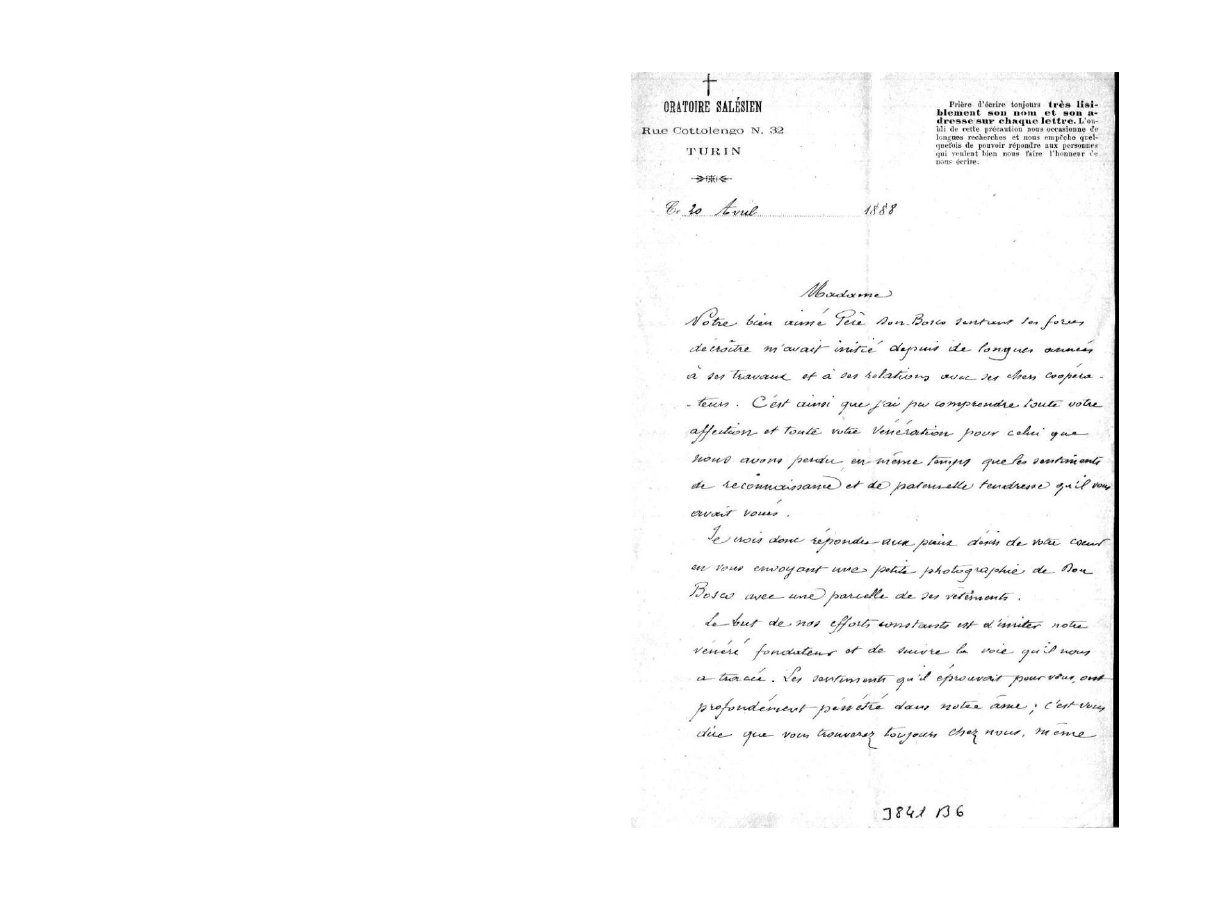 ORATOIRE SALÉSIEN
Rue Cottolengo N. 32
TURIN
Prière d'écrire toujours très lisi-
blement son nom et son a-
dresse sur chaque lettre. L'ou-
bli de cette précaution nous occasionne de
longues recherches et nous empêche quel-
quefois de pouvoir répondre aux personnes
qui veulent bien nous faire l'honneur de
nous écrire.
Ce 20 Avril 1888
Madame
Votre bien aimé Père Don Bosco sentant ses forces
décroître m'avait initié depuis de longues années
à ses travaux et à ses relations avec ses chers coopéra-
-teurs. C'est ainsi que j'ai pu comprendre toute votre
affection et toute votre vénération pour celui que
nous avons perdu, en même temps que les sentiments
de reconnaissance et de paternelle tendresse qu'il vous
avait voués.
Je crois donc répondre aux pieux désirs de votre cœur
en vous envoyant une petite photographie de Don
Bosco avec une parcelle de ses vêtements.
Le but de nos efforts constants est d'imiter notre
vénéré fondateur et de suivre la voie qu'il nous
a tracée. Les sentiments qu'il éprouvait pour vous, ont
profondément pénétré dans notre âme; c'est vous
dire que vous trouverez toujours chez nous, même
3841 B6